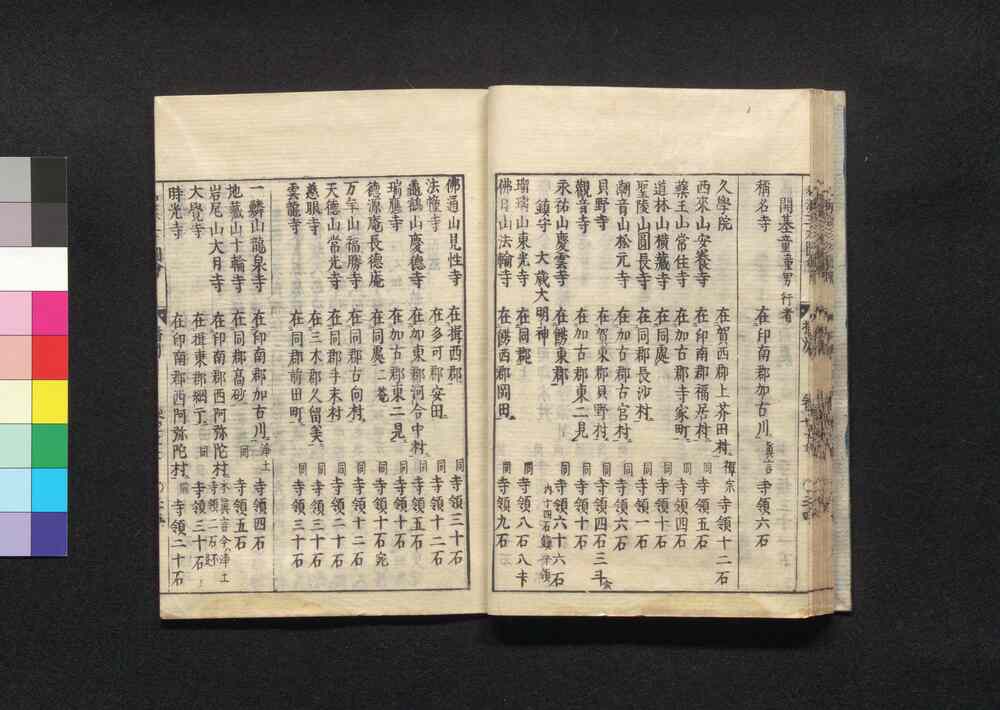 開基童男 行者
稱名寺 在印南郡加古川 真言 寺領六石
久學院 在賀西郡上芥田村 禅宗 寺領十二石
西來山安養寺 在印南郡福居村 同 寺領五石
藥王山常住寺 在加古郡寺家町 同 寺領十石
道林山横藏寺 在同處 同 寺領十石
聖陵山圓長寺 在同郡長沙村 同 寺領一石
潮音山松元寺 在加古郡古宮村 同 寺領六石
貝野寺 在賀東郡貝野村 同 寺領四石三斗
觀音寺 在加古郡東二見 同 寺領十石
永祐山慶雲寺 在餝東郡 同 寺領六十六石
鎮守 大歳大明神 内十四石鎮守領
瑠璃山東光寺 在同郡 同 寺領八石八斗
佛日山法輪寺 在餝西郡岡田 同 寺領九石
佛通山見性寺 在揖西郡 同 寺領三十石
法幢寺 在多可郡安田 同 寺領十二石
龜鶴山慶德寺 在加東郡河合中村 同 寺領五石
瑞應寺 在加古郡東二見 同 寺領十石
德源庵長德庵 在同處二菴 同 寺領十石宛
万年山福勝寺 在同郡古向村 同 寺領十二石
天德山常光寺 在同郡手末村 同 寺領二十石
慈眼寺 在三木郡久留美 同 寺領十石
雲龍寺 在同郡前田町 同 寺領三十石
一麟山龍泉寺 在印南郡加古川 浄土 寺領四石
地藏山十輪寺 在同郡高砂 同 寺領五石
岩尾山大月寺 在印南郡西阿弥陀村 本真言今浄土 寺領二石
大覺寺 在揖東郡網干 同 寺領三十石
時光寺 在印南郡西阿弥陀村 同 寺領二十石